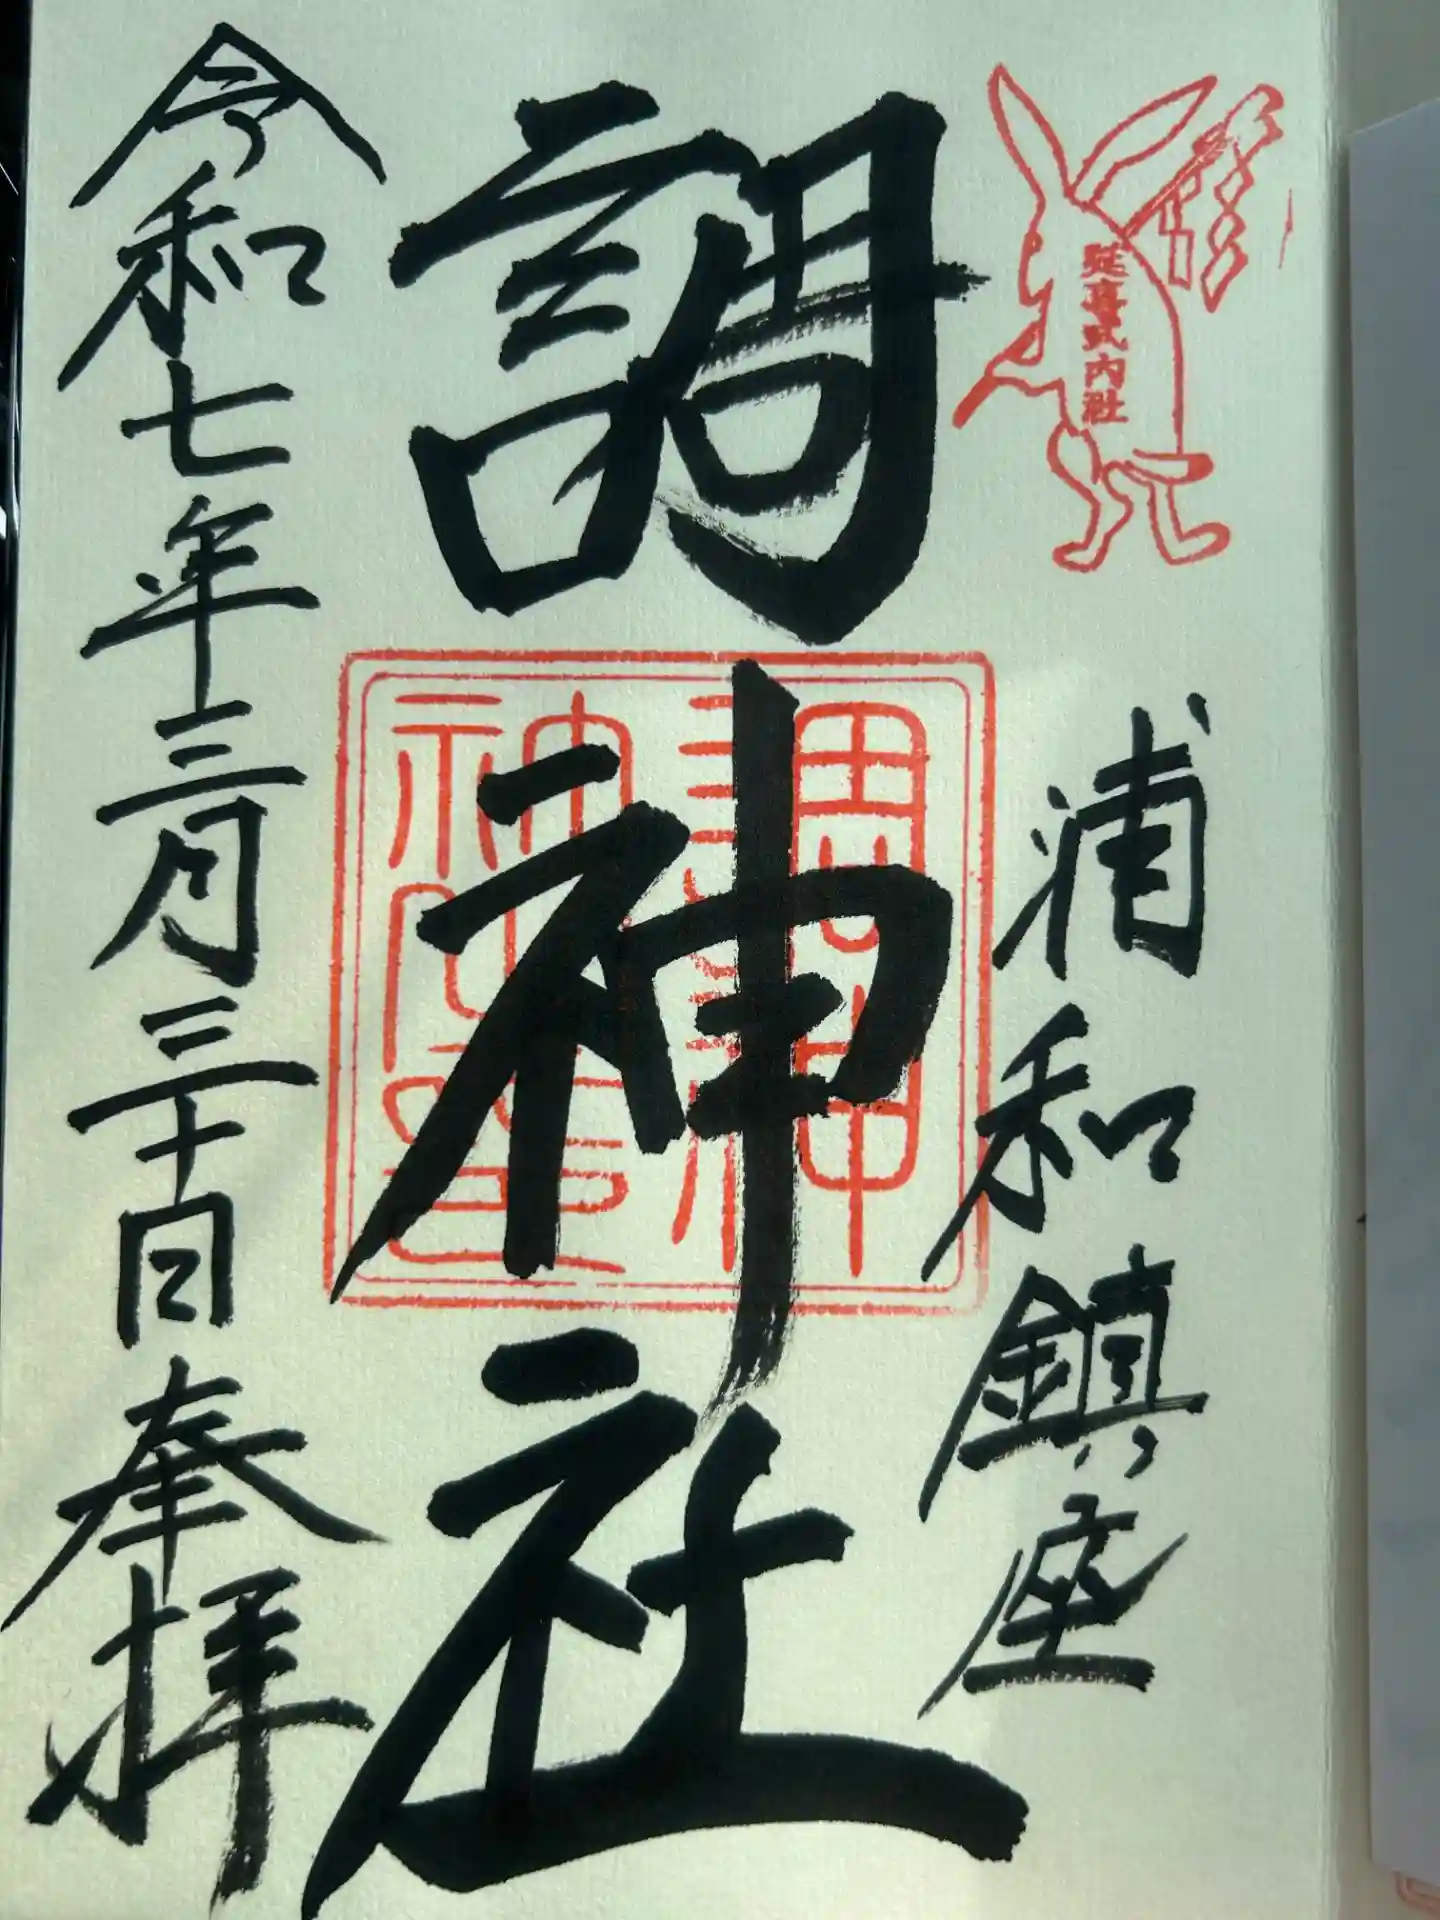 延喜式内社
浦和鎮座
調神社
調神
神社之印
令和七年三月三十日奉拝